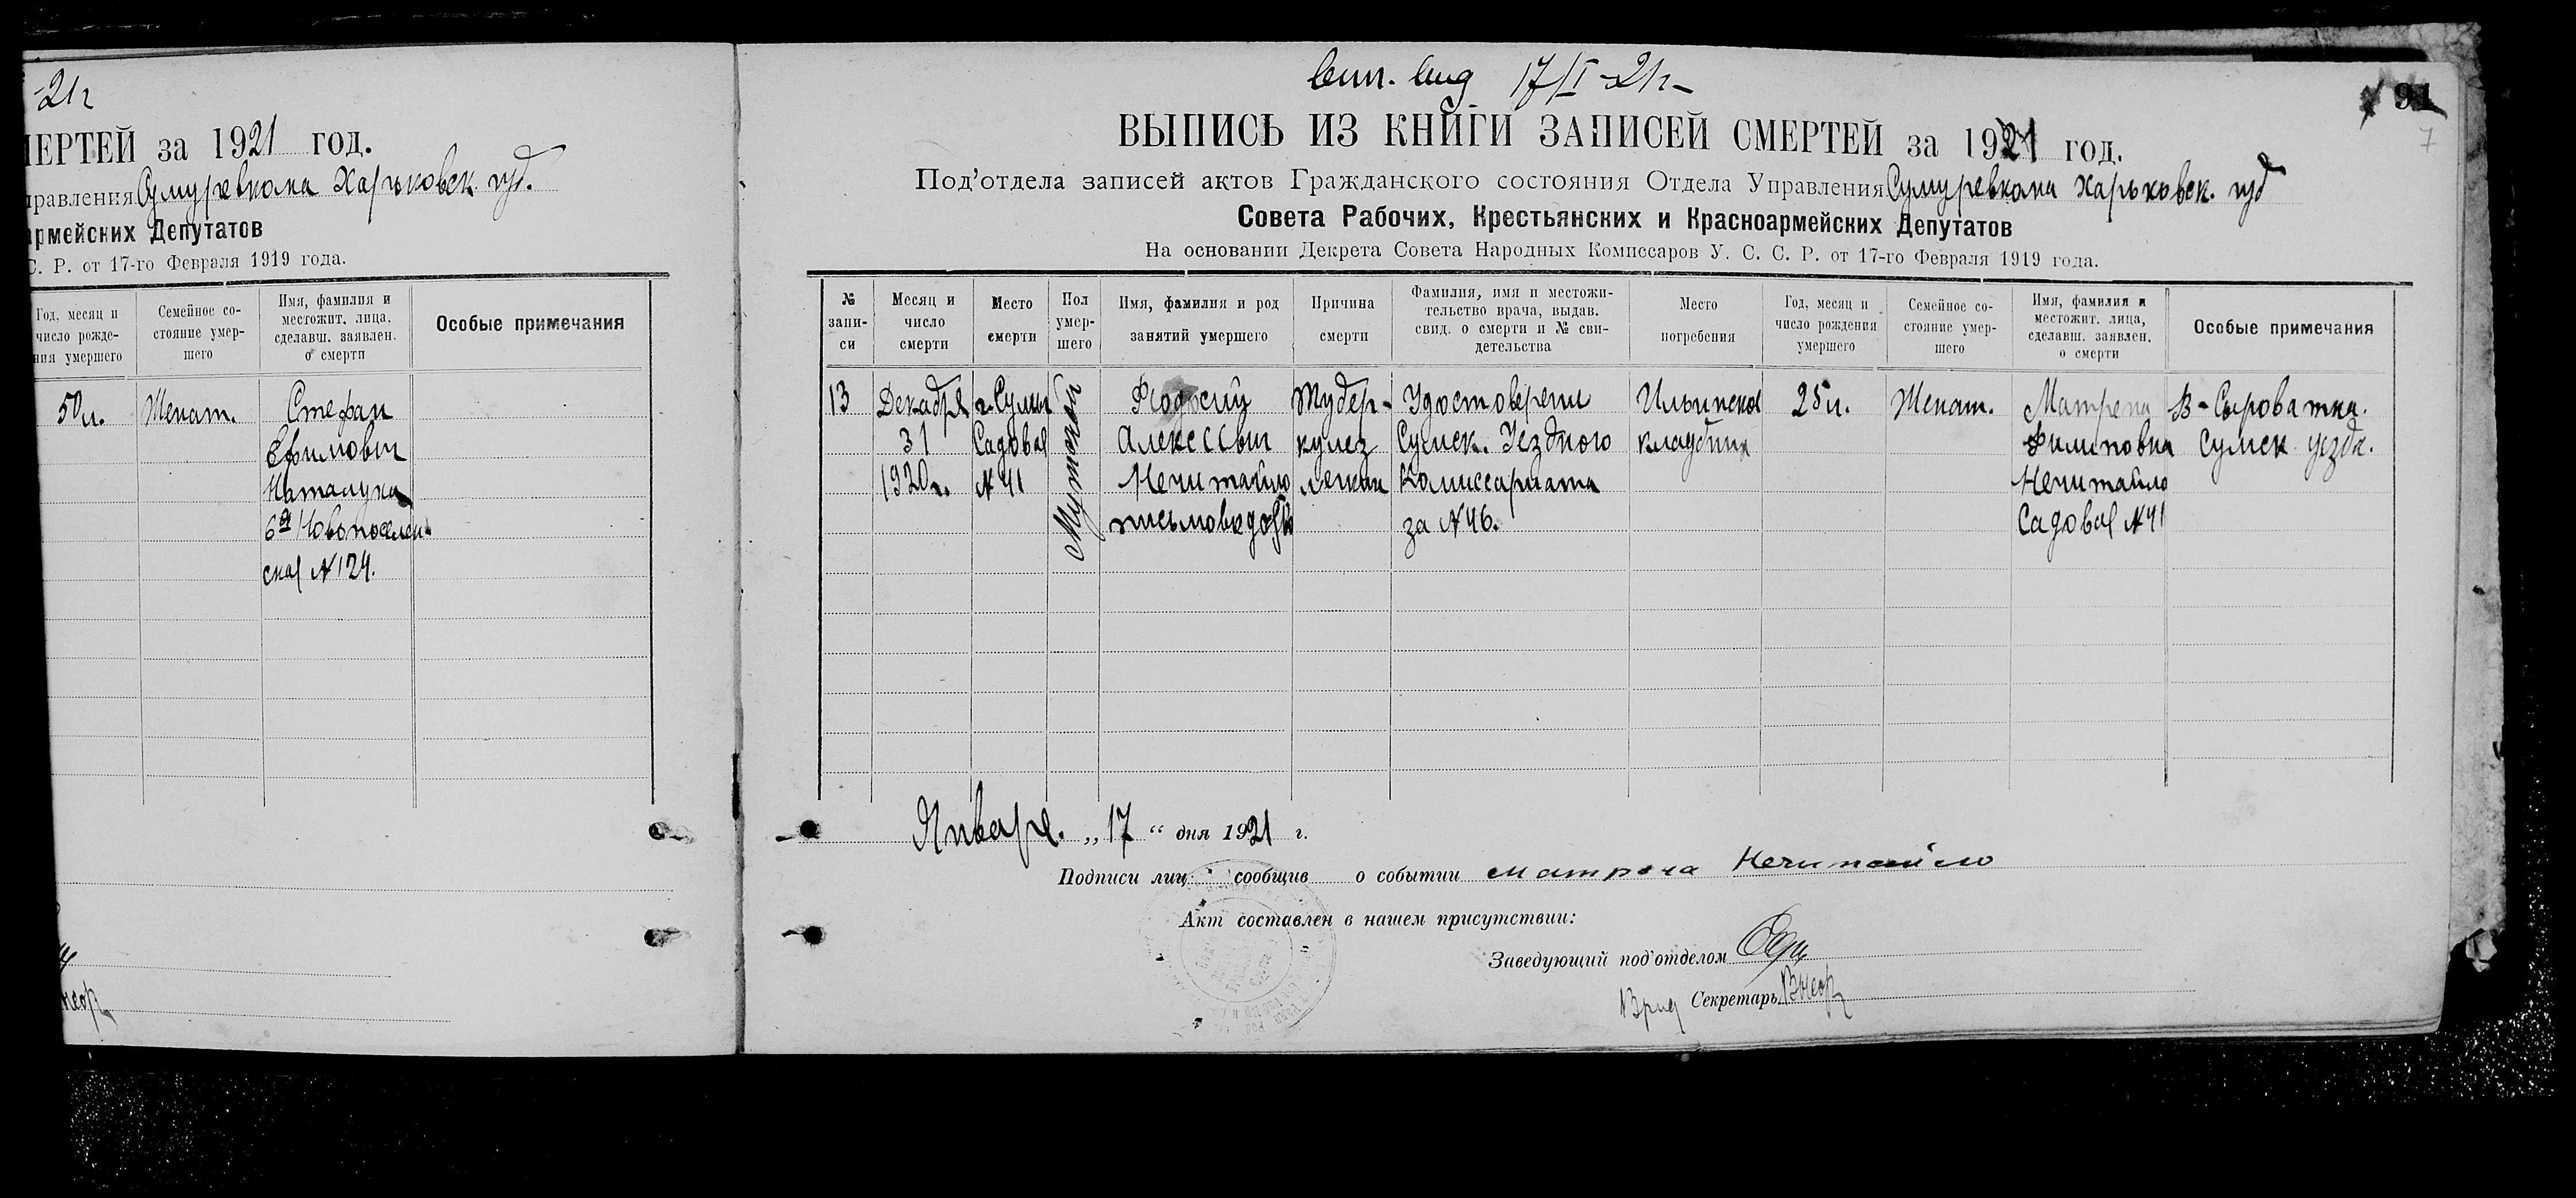 -21г
МЕРТЕЙ за 1921 год.
правления Сумуревкома Харьковск. губ.
армейских Депутатов
С. Р. от 17-го Февраля 1919 года.
Год, месяц и
число рожде-
ния умершего
Семейное со-
стояние умер-
шего
Имя, фамилия и
местожит. лица,
сделавш. заявлен.
о смерти
Особые примечания
50 л.
Женат.
Стефан
Ефимович
Наталуха
6ая Новопоселен-
ская №124.
Сум. 17/I-21г-
91
7
ВЫПИСЬ ИЗ КНИГИ ЗАПИСЕЙ СМЕРТЕЙ за 1921 год.
Под'отдела записей актов Гражданского состояния Отдела Управления Сумуревкома Харьковск. губ
Совета Рабочих, Крестьянских и Красноармейских Депутатов
На основании Декрета Совета Народных Комиссаров У. С. С. Р. от 17-го Февраля 1919 года.
№
запи-
си
Месяц и
число
смерти
Место
смерти
Пол
умер-
шего
Имя, фамилия и род
занятий умершего
Причина
смерти
Фамилия, имя и местожи-
тельство врача, выдав.
свид. о смерти и № сви-
детельства
Место
погребения
Год, месяц и
число рождения
умершего
Семейное со-
стояние умер-
шего
Имя, фамилия и
местожит. лица,
сделавш. заявлен.
о смерти
Особые примечания
13
Декабря
31
1920 г.
г. Сумы
Садовая
№41
Мужской
Феодосий
Алексеевич
Нечитайло
письмоводство
Тубер-
кулез
легких
Удостоверени
Сумск. Уездного
Комиссариата
за №46.
Ильинское
кладбище
25 л.
Женат.
Матрена
Филиповна
Нечитайло
Садовая №41
В-Сыроватка.
Сумск. уезда.
Января. „17“ дня 1921 г.
Подписи лиц сообщив о событии Матрона Нечитайло
Акт составлен в нашем присутствии:
Заведующий под'отделом
Врид Секретарь